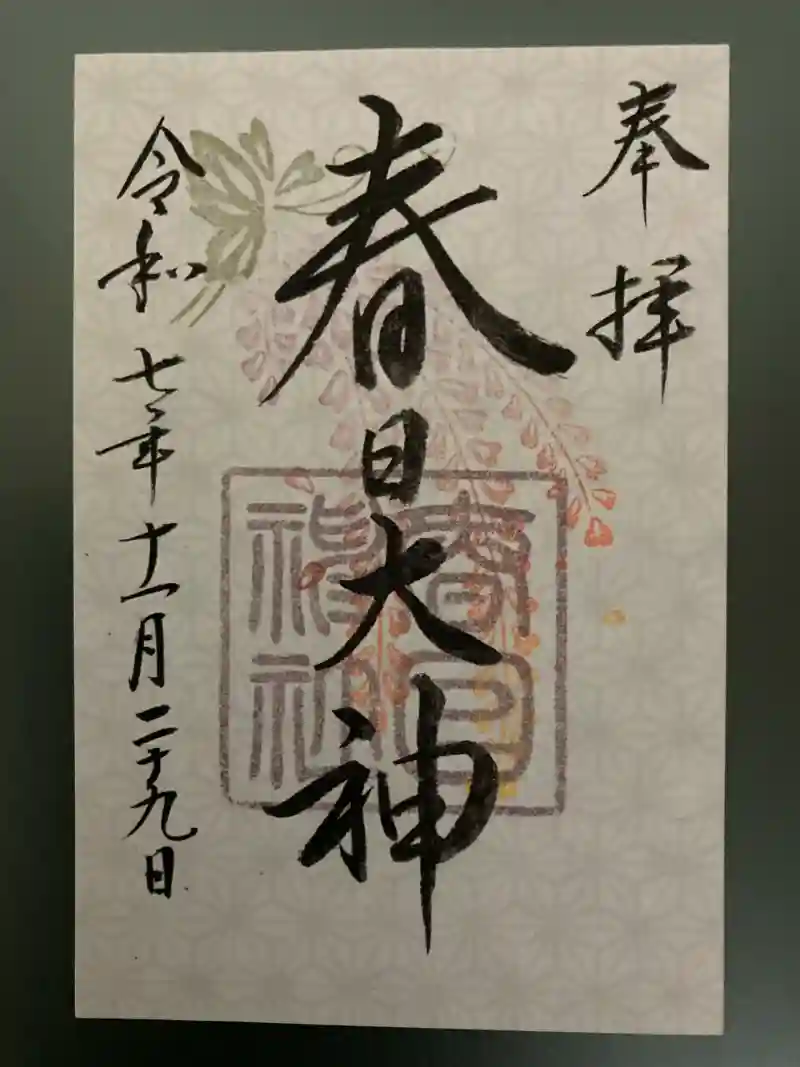 奉拝
春日大神
春日神社
令和七年十一月二十九日